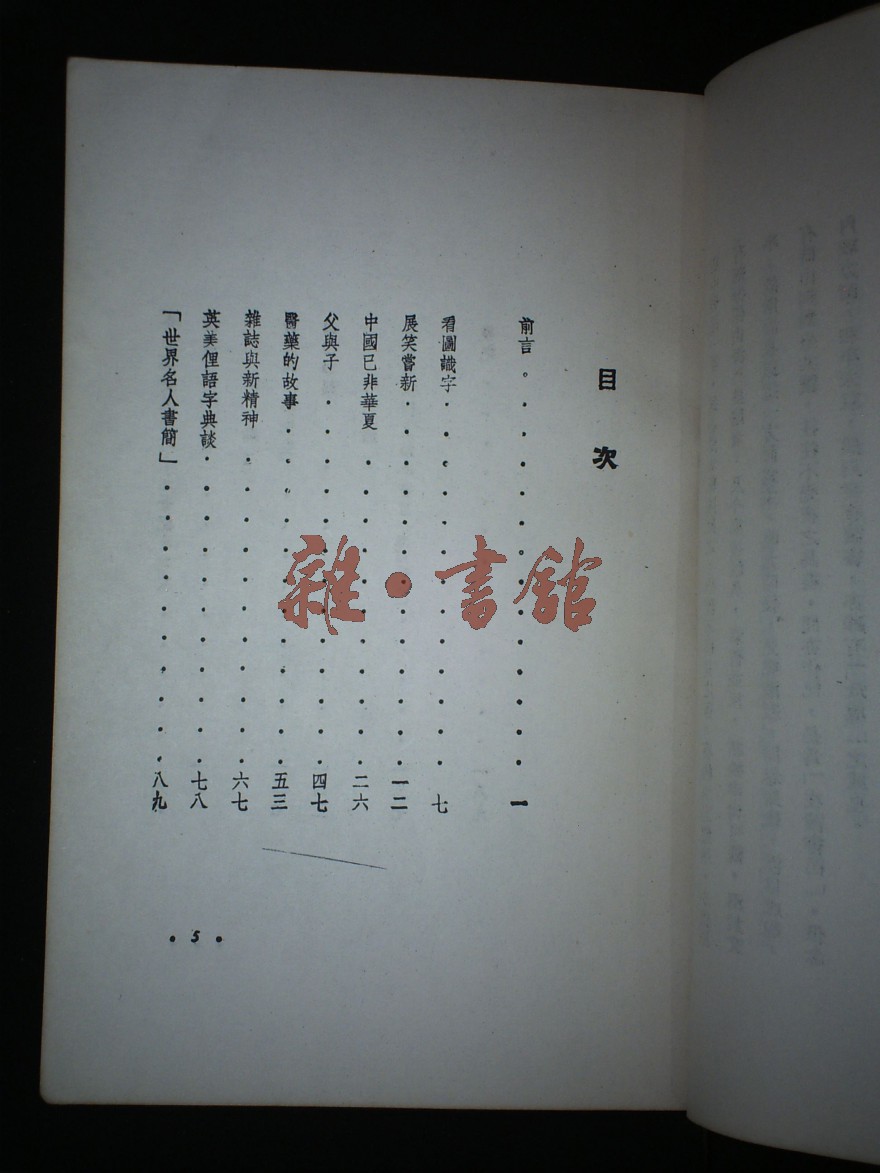 目次
前言。一
看圖識字七
展笑嘗新一二
中國已非華夏二六
父與子四七
醫藥的故事五三
雜誌與新精神六七
英美俚語字典談七八
「世界名人書簡」八九
•5•
雜•書館